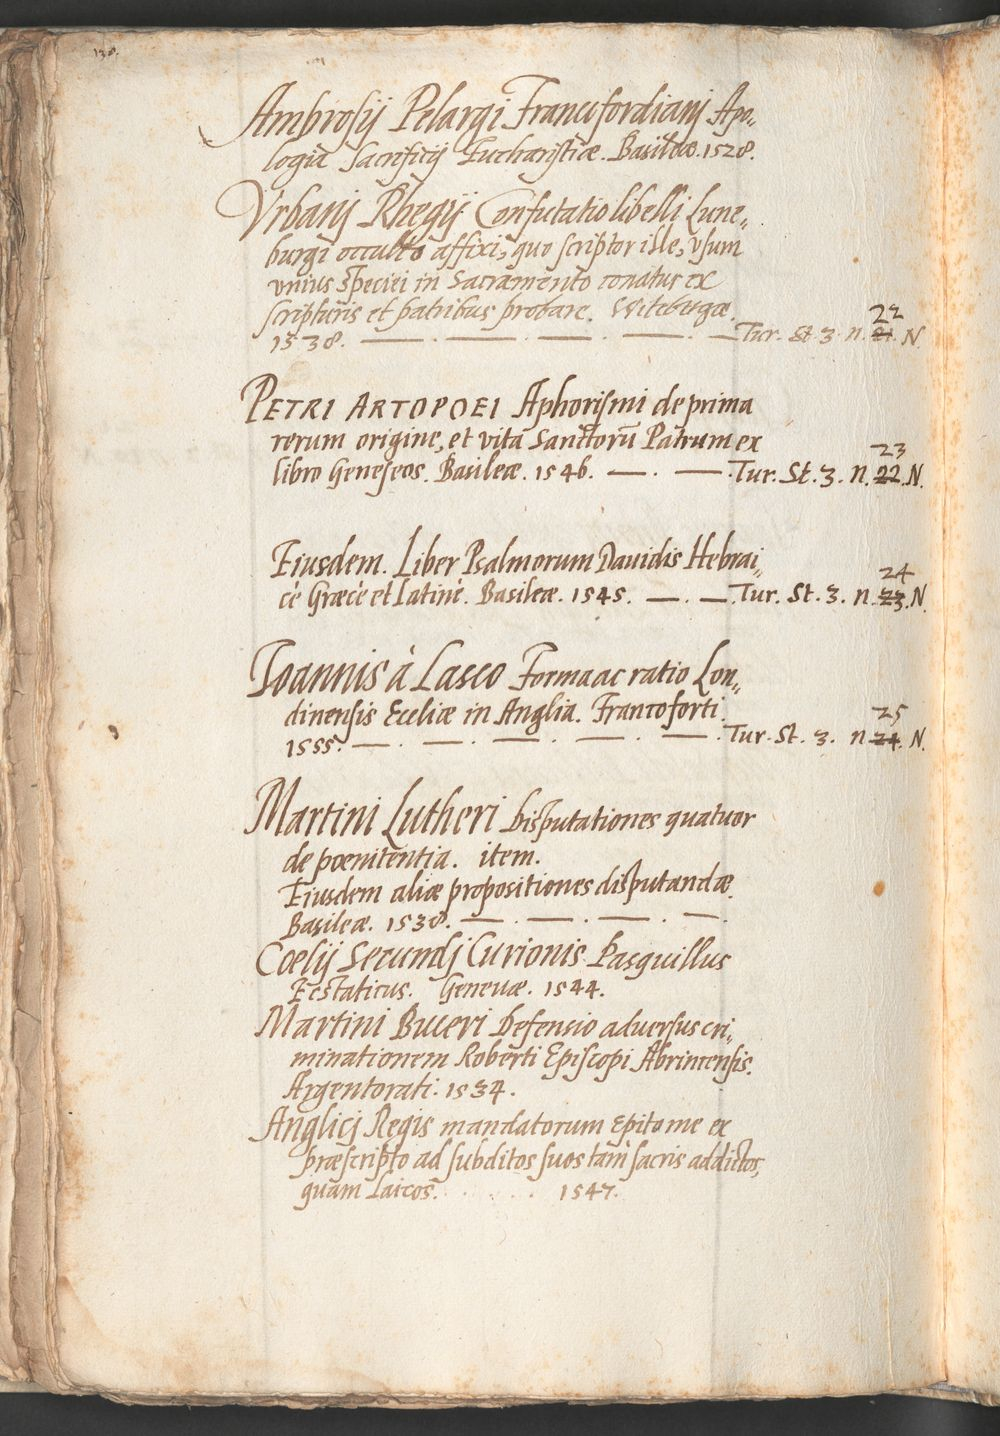 138.
Ambrosij Pelargi Francofordianj Apo„
logia Sacrificij Eucharistiæ. Basileæ. 1528.
Vrbanj Rhegij Confutatio libelli Lune„
burgi occulto affixi, quo scriptor ille, vsum
vnius speciei in Sacramento conatur ex
scripturis et patribus probare. Witebergæ.
1538. — . — . — . — . — Tur. St. 3. n. 22 21. N.
PETRI ARTOPOEI Aphorismi de prima
rerum origine, et vita Sanctorū Patrum ex
libro Geneseos. Basileæ. 1546. — . — . Tur. St. 3. n. 23 22. N.
Eiusdem. Liber Psalmorum Dauidis Hebrai„
cè Græcè et Latinè. Basileæ. 1545. — . — . Tur. St. 3. n. 24 23. N.
Ioannis à Lasco Forma ac ratio Lon„
dinensis Eccliæ in Anglia. Francoforti.
1555. — . — . — . — . — . Tur. St. 3. n. 25 24. N.
Martini Lutheri Disputationes quatuor
de pœnitentia. item.
Eiusdem aliæ propositiones disputandæ.
Basileæ. 1538. — . — . — . — .
Cœlij Secundj Curionis Pasquillus
Ecstaticus. Geneuæ. 1544.
Martini Buceri Defensio aduersus cri„
minationem Roberti Episcopi Abrincensis.
Argentorati. 1534.
Anglicj Regis mandatorum Epitome ex
præscripto ad subditos suos tàm sacris addictos,
quam Laicos. . . . . . 1547.